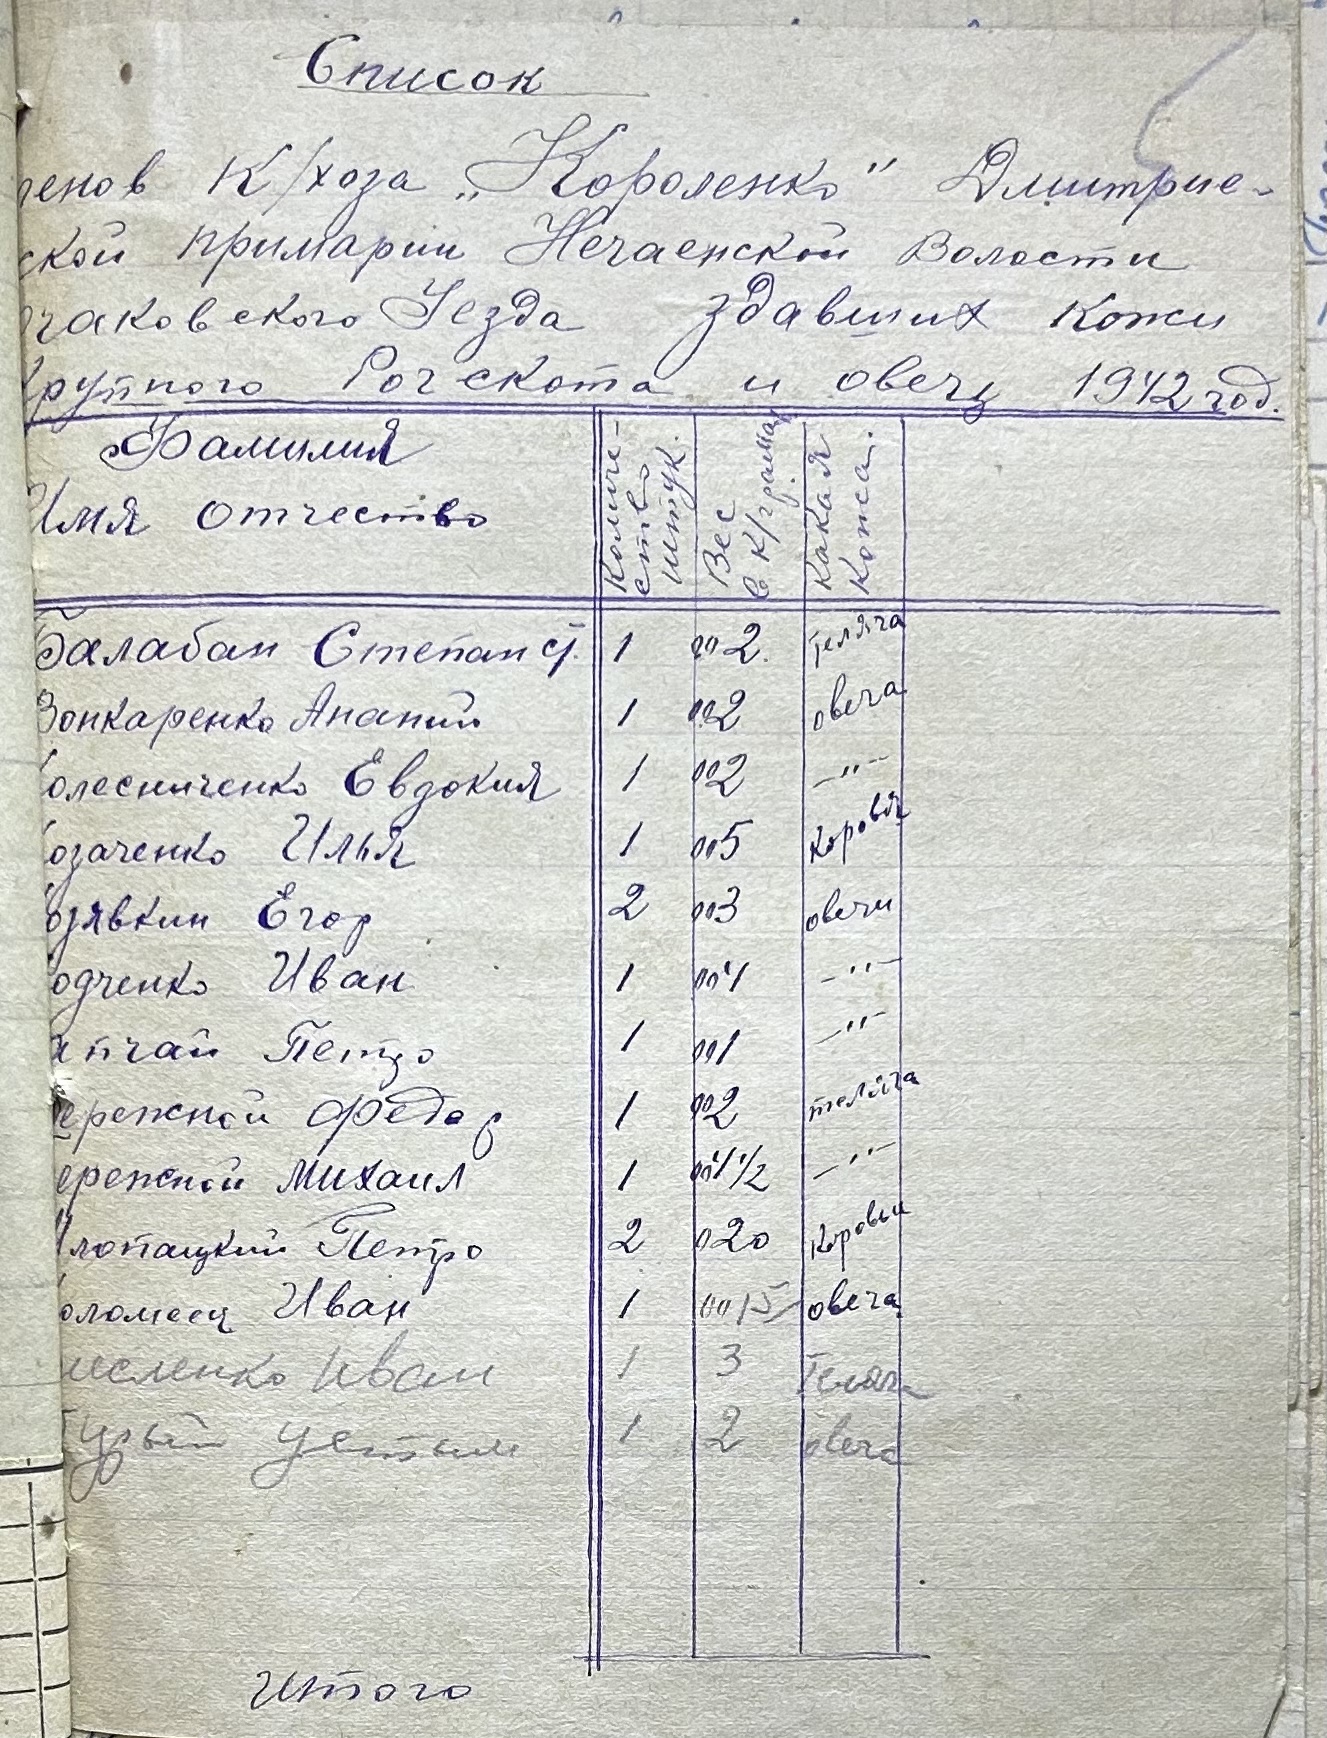 Список
енов к/хоза „Короленко" Дмитрие-
ской примарии Нечаенской Волости
чаковского Уезда здавших кожи
крупного Рог скота и овец 1942 год.
Фамилия Имя отчество Количество штук. Вес в К/грамах Какая Кожа.
Балабан Степан 1 002. теляча
Бонкаренко Ананий 1 002 овеча
олесниченко Евдокия 1 002 —"—
озаченко Илья 1 005 Коровя
озявкин Егор 2 003 овечи
одченко Иван 1 004 —"—
апчай Петро 1 001 —"—
ережной Федор 1 002 теляча
ережной Михаил 1 1/2 —"—
лопацкий Петро 2 020 Коровьи
оломеец Иван 1 0015 овеча
исленко Иван 1 3 Теляча
1 2 овеча
Итого